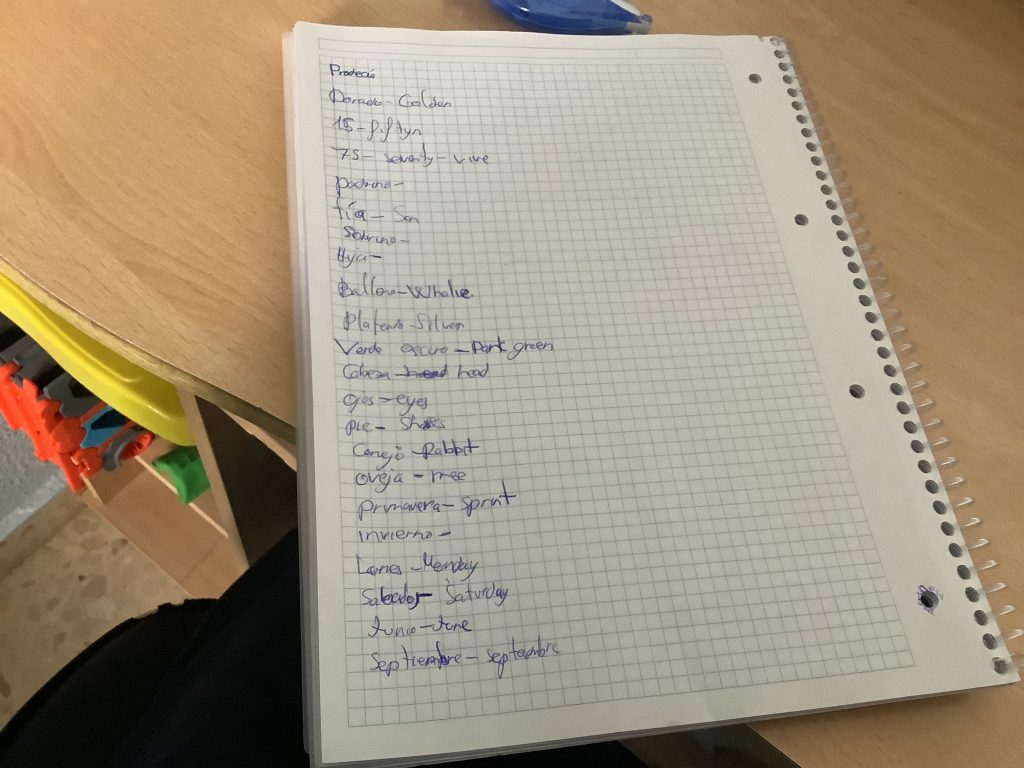 Prodecia
Dorado - Golden
15 - fiftyn
75 - seventy - vive
padrino -
tía - Son
Sobrino -
Hija -
Ballena - Whalie.
Plateado - Silver
Verde oscuro - Dark green
Cabeza - head
ojos - eyes
pie - Shoes
Conejo - Rabbit
oveja - mee
primavera - Sprint
invierno -
Lunes - Monday
Sabado - Saturday
Junio - June
Septiembre - Septembre